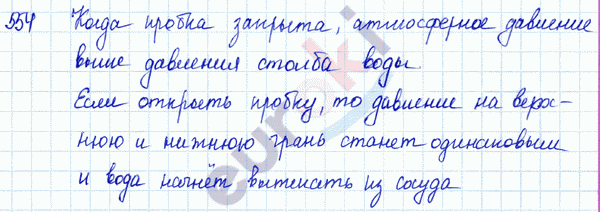 554 Когда пробка закрыта, атмосферное давление
выше давления столба воды.
Если открыть пробку, то давление на верх-
нюю и нижнюю грань станет одинаковым
и вода начнёт вытекать из сосуда
euroki